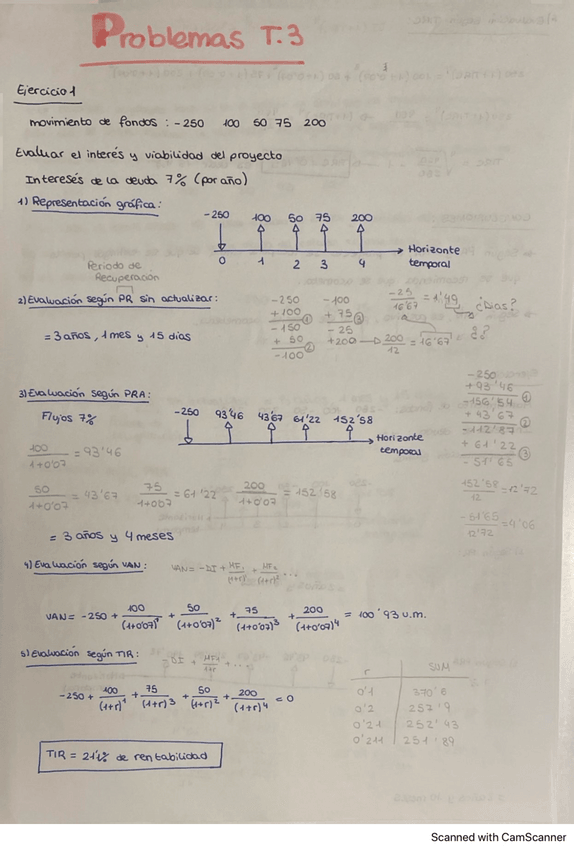 Problemas T.3
Ejercicio 1
movimiento de fondos : -250 100 50 75 200
Evaluar el interés y viabilidad del proyecto
Intereses de la deuda 7% (por año)
1) Representación gráfica:
-250 100 50 75 200
0 1 2 3 4
Horizonte
temporal
Periodo de
Recuperación
2) Evaluación según PR sin actualizar:
= 3 años, 1 mes y 15 días
-250
+100 ①
-150
+ 50 ②
-100
-100
+ 75 ③
-25
+200 → 200/12 = 16'67
-25/16'67 = 1'49
¿Días?
¿?
3) Evaluación según PRA:
Flujos 7%
-250 93'46 43'67 61'22 152'58
Horizonte
temporal
100/1+0'07 = 93'46
50/1+0'07 = 43'67 75/1+0'07 = 61'22 200/1+0'07 = 152'58
= 3 años y 4 meses
-250
+93'46 ①
-156'54
+ 43'67 ②
-112'87
+ 61'22 ③
- 51'65
152'58/12 = 12'72
-51'65/12'72 = 4'06
4) Evaluación según VAN: VAN = -DI + MF1/(1+r)¹ + MF2/(1+r)² ...
VAN = -250 + 100/(1+0'07)¹ + 50/(1+0'07)² + 75/(1+0'07)³ + 200/(1+0'07)⁴ = 100'93 u.m.
5) Evaluación según TIR: = -DI + MF1/1+r + ...
-250 + 100/(1+r)¹ + 75/(1+r)³ + 50/(1+r)² + 200/(1+r)⁴ = 0
r SUM
0'1 370'6
0'2 257'9
0'21 252'43
0'211 251'89
TIR = 21'1% de rentabilidad
Scanned with CamScanner